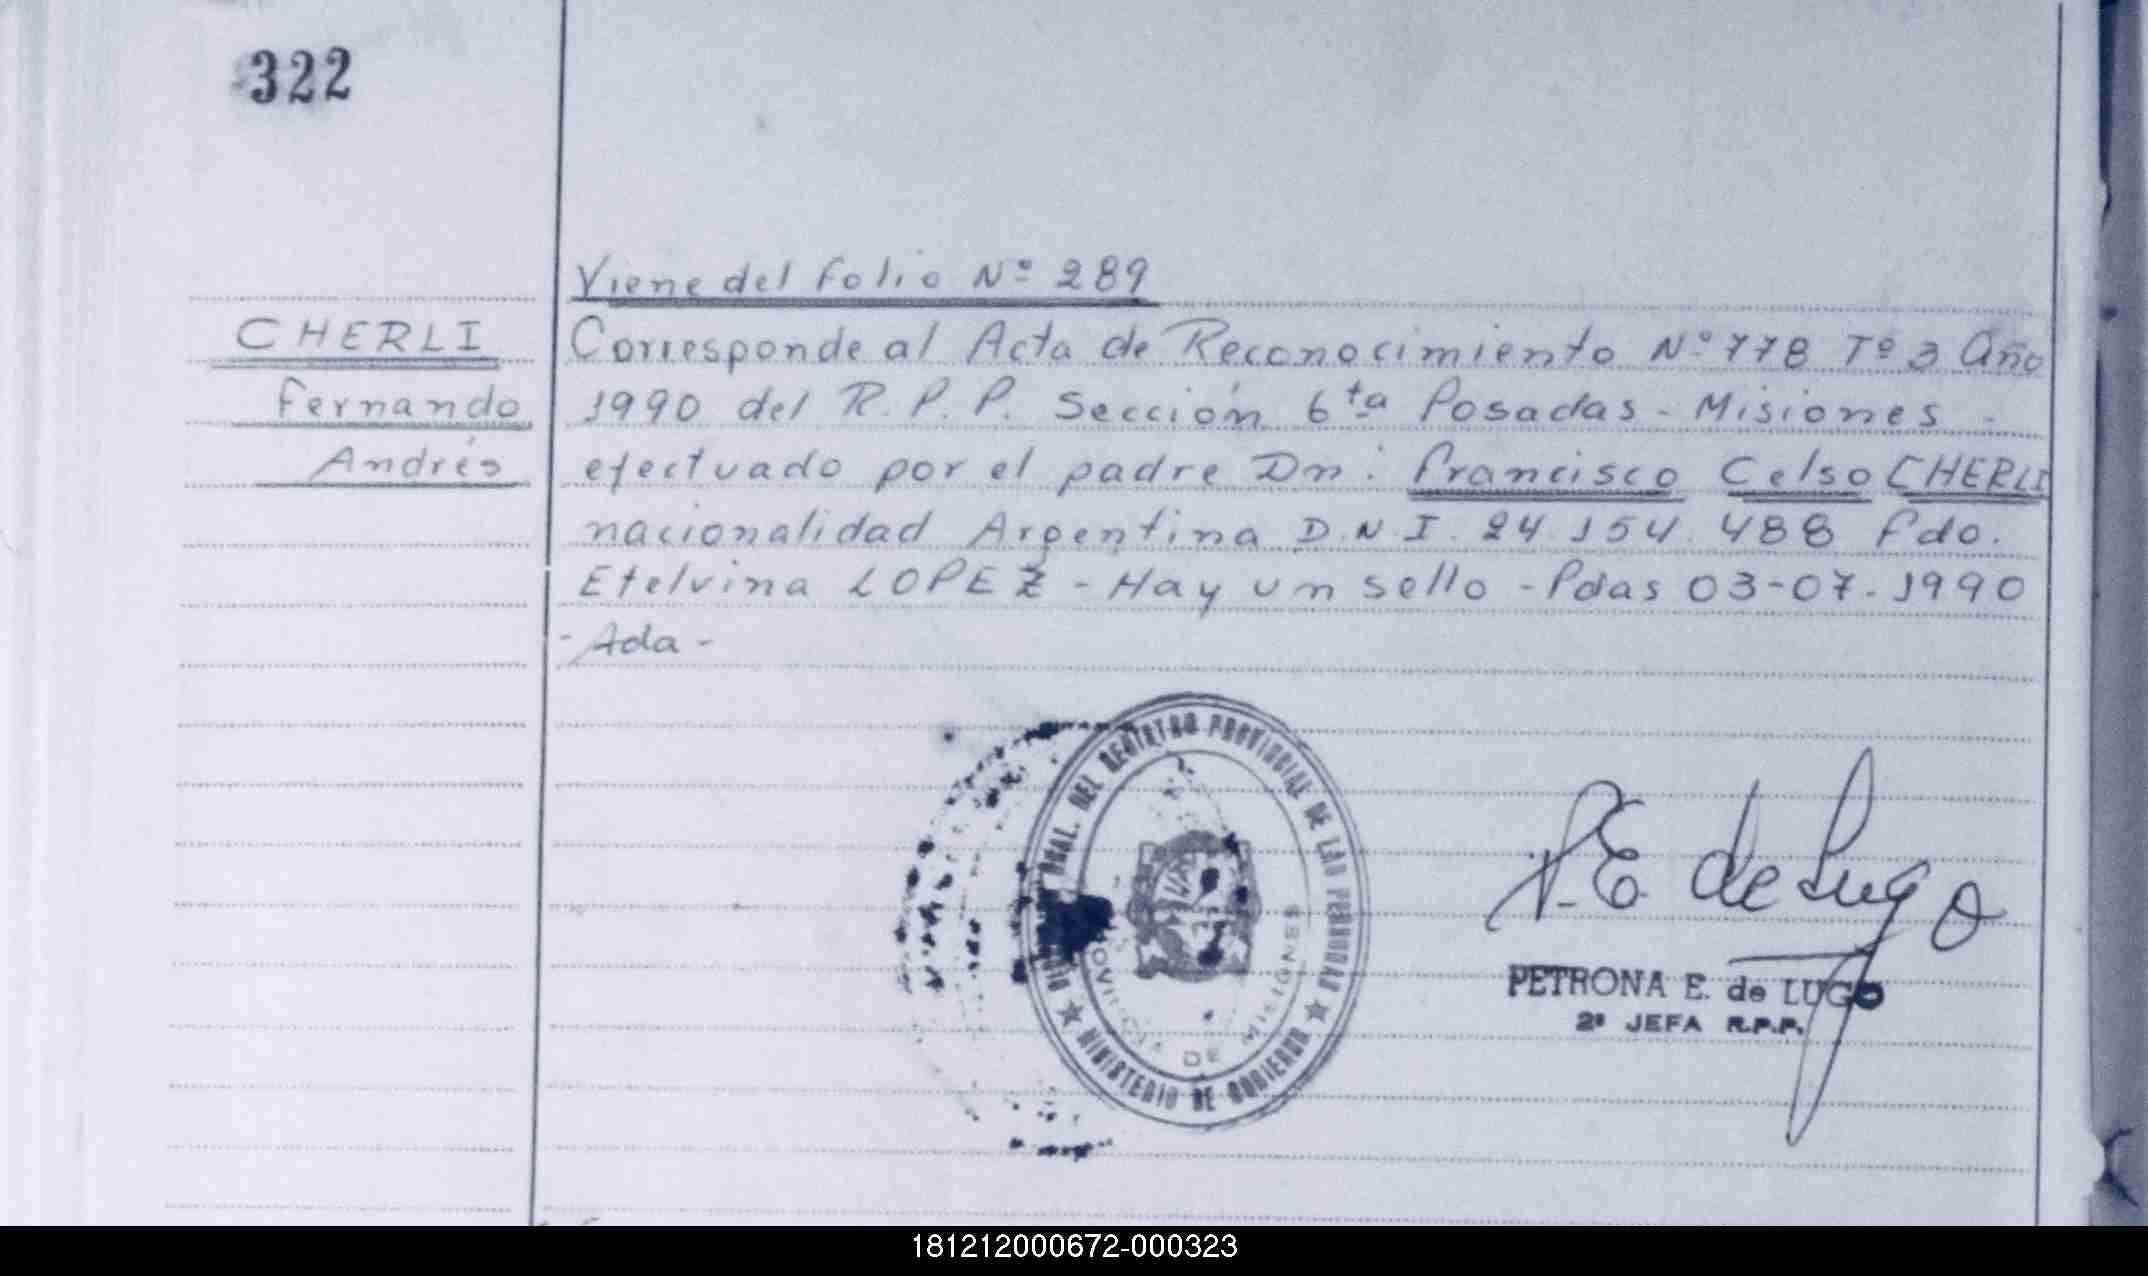 322
Viene del folio Nº 289
CHERLI
Fernando
Andrés
Corresponde al Acta de Reconocimiento Nº 778 Tº 3 Año
1990 del R. P. P. Sección 6ta Posadas - Misiones -
efectuado por el padre Dn: Francisco Celso CHERLI
nacionalidad Argentina D.N.I. 24.154.488 Fdo.
Etelvina LOPEZ - Hay un sello - Pdas 03-07-1990
- Ada -
GRAL. DEL REGISTRO PROVINCIAL DE LAS PERSONAS
★ MINISTERIO DE GOBIERNO ★
PROVINCIA DE MISIONES
P.E. de Lugo
PETRONA E. de LUGO
2ª JEFA R.P.P.
181212000672-000323